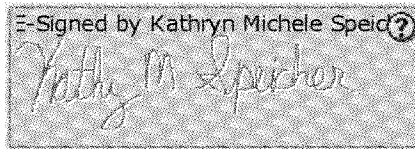 E-Signed by Kathryn Michele Speic
?
Kathy M Speicher